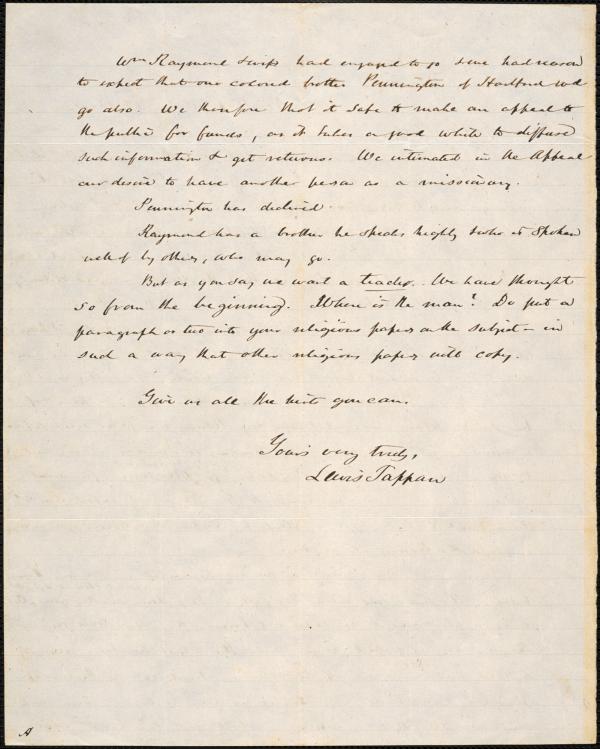 Wm Raymond & wife had engaged to go & we had reason
to expect that our colored brother Pennington of Hartford wd
go also. We therefore thot it safe to make an appeal to
the public for funds, as it takes a good while to diffuse
such information & get returns. We intimated in the Appeal
our desire to have another person as a missionary.
Pennington has declined.
Raymond has a brother he speaks highly & who is spoken
well of by others, who may go.
But as you say we want a teacher. We have thought
so from the beginning. Where is the man? Do put a
paragraph or two into your religious papers on the subject - in
such a way that other religious papers will copy.
Give us all the hints you can.
Yours very truly,
Lewis Tappan
A